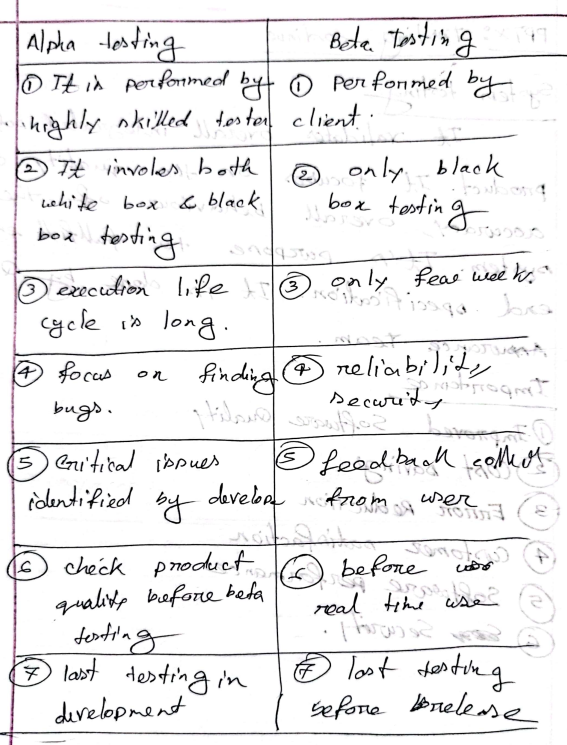 Alpha testing
Beta Testing
① It is performed by
highly skilled tester
① performed by
client.
② It involes both
white box & black
box testing
② only black
box testing
③ execution life
cycle is long.
③ only feae week.
④ focus on finding
bugs.
④ reliability
security
⑤ Critical issues
identified by develope
⑤ feedback
from user
⑥ check product
quality before beta
testing
⑥ before
real time use
⑦ last testing in
development
⑦ last testing
before release